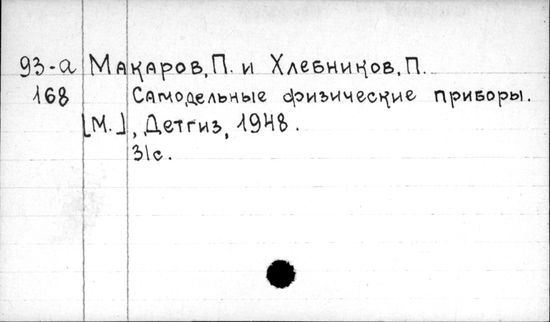 93-а Макаров, П. и Хлебников, П.
168 Самодельные физические приборы.
[М.], Детгиз, 1948.
31с.